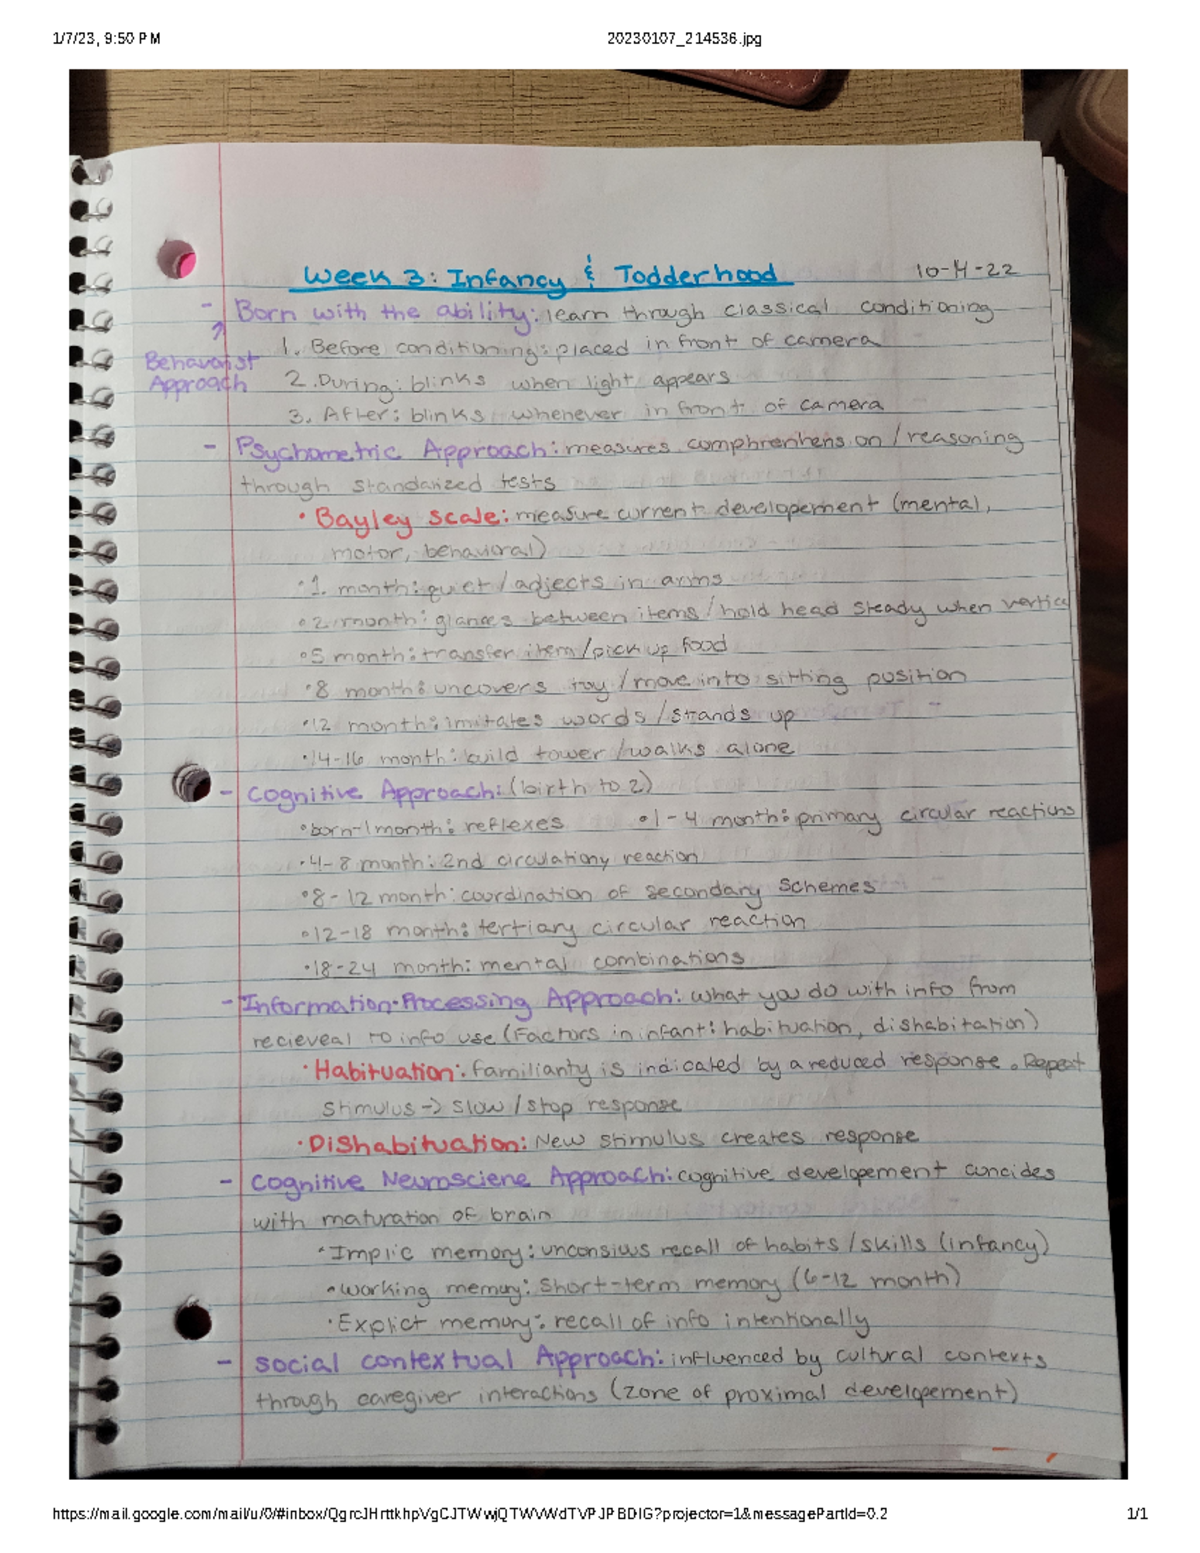 1/7/23, 9:50 PM
20230107_214536.jpg
Week 3: Infancy & Todderhood 10-4-22
- Born with the ability: learn through classical conditioning
Behavorist Approach
1. Before conditioning: placed in front of camera
2. During: blinks when light appears
3. After: blinks whenever in front of camera
- Psychometric Approach: measures comphrenhension / reasoning
through standarized tests
• Bayley Scale: measure current developement (mental,
motor, behavioral)
• 1. month: quiet / adjects in arms
• 2 month: glances between items / hold head steady when
• 5 month: transfer item / pick up food
• 8 month: uncovers toy / move into sitting position
• 12 month: imitates words / stands up
• 14-16 month: build tower / walks alone
- Cognitive Approach: (birth to 2)
• born-1 month: reflexes • 1-4 month: primary circular reactions
• 4-8 month: 2nd circulationy reaction
• 8-12 month: coordination of secondary schemes
• 12-18 month: tertiary circular reaction
• 18-24 month: mental combinations
- Information-Processing Approach: what you do with info from
recieveal to info use (Factors in infant: habituation, dishabitation)
• Habituation: familianty is indicated by a reduced response. Repeat
stimulus -> slow / stop response
• Dishabituation: New stimulus creates response
- Cognitive Neurosciene Approach: cognitive developement concides
with maturation of brain
• Implic memory: unconsius recall of habits / skills (infancy)
• working memory: short-term memory (6-12 month)
• Explict memory: recall of info intentionally
- social contextual Approach: influenced by cultural contexts
through caregiver interactions (zone of proximal developement)
https://mail.google.com/mail/u/0/#inbox/QgrcJHrttkhpVgCJTWwjQTWVWdTVPJPBDIG?projector=1&messagePartId=0.2
1/1